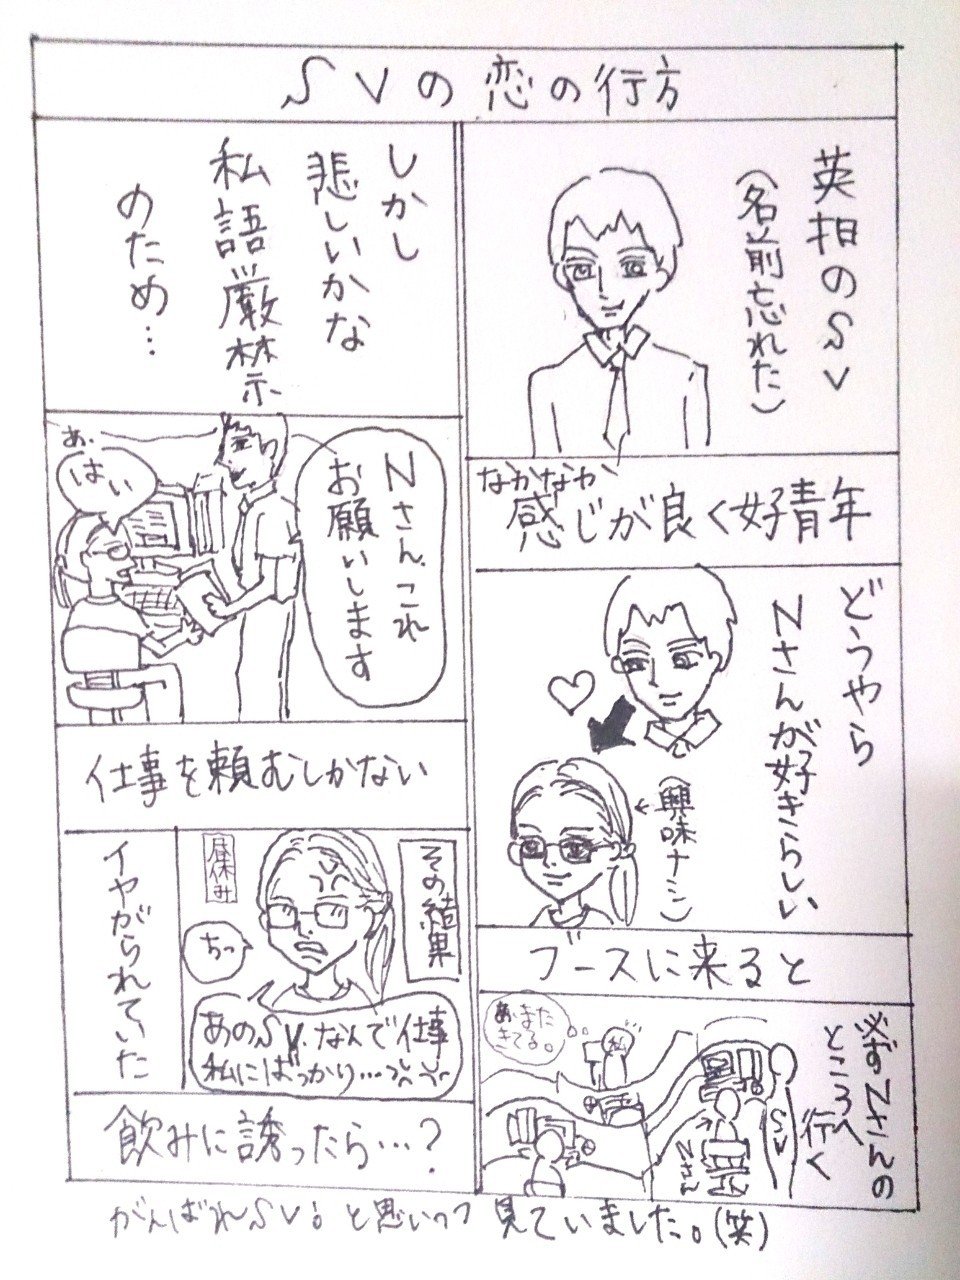 SVの恋の行方
英担のSV
(名前忘れた)
なかなか
感じが良く好青年
どうやら
Nさんが好きらしい
(興味ナシ)
ブースに来ると
必ずNさんの
ところへ
行く
SV
Nさん
私
あ、また
きてる。
しかし
悲しいかな
私語厳禁
のため…
Nさん、これ
お願いします
あ、
はい
仕事を頼むしかない
その結果
昼休み
ちっ
あのSV、なんで仕事
私にばっかり…
イヤがられていた
飲みに誘ったら…?
がんばれSV。と思いつつ見ていました。(笑)